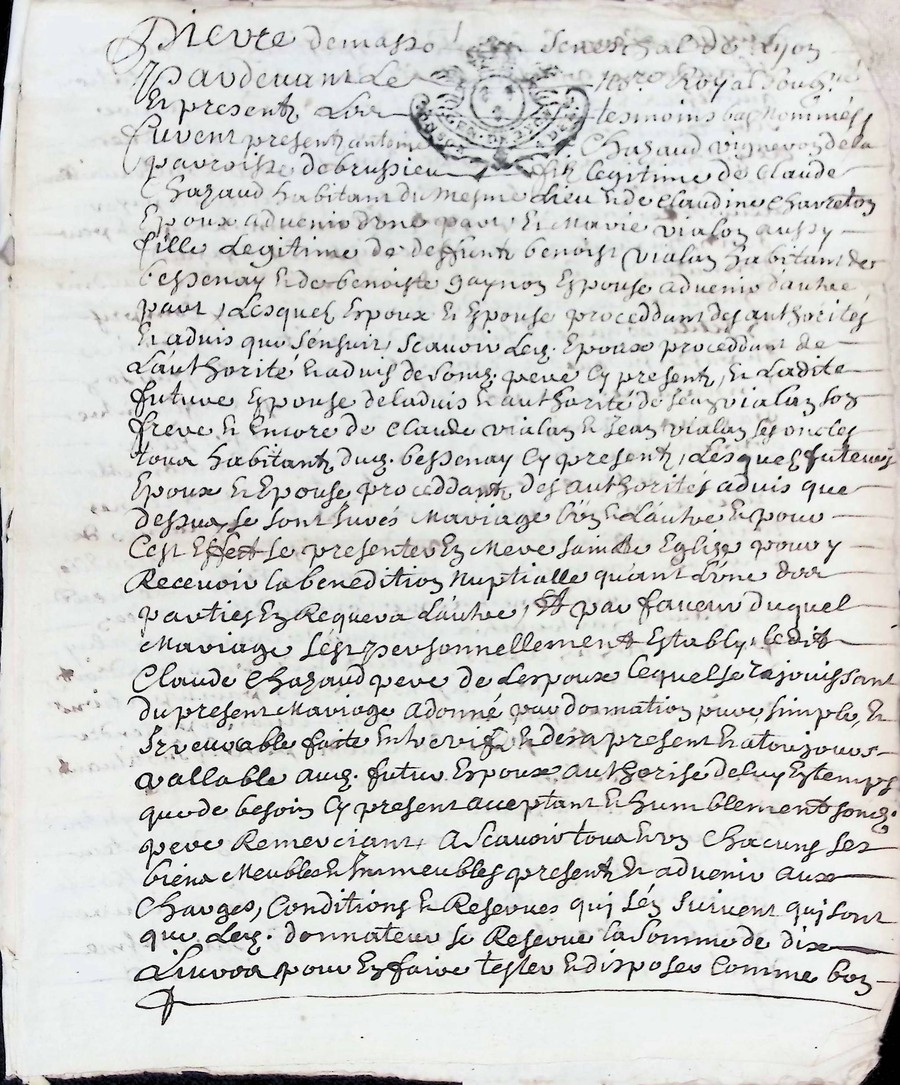 Pierre demasso Senechal de Lyon
Pardevant Le no.re Royal Soub.né
Et present Les tesmoins bas Nommés
furent present antoine Chazaud vigneron de la
parroisse de brussieu filz legitime de Claude
Chazaud habitant du Mesme Lieu & de Claudine Charreton
Epoux advenir d'une part, Et Marie vialon aussy
fille Legitime de deffunt benoist vialon habitant de
bessenay & de benoiste gaynon Espouse advenir d'autre
part, Lesquels Espoux Et Espouse proceddant des authorités
Et advis que s'ensuit, Scavoir Led. Epoux proceddant de
L'authorité Et advis de sond. pere Cy present, Et Ladite
future Espouse de l'advis & authorité de Jean vialon son
frere & Encore de Claude vialon & Jean vialon ses oncles
tous habitants dud. bessenay Cy present, Lesquels futeurs
Epoux & Epouse proceddant des authorités advis que
dessus, se sont Jurés Mariage L'un & L'autre Et pour
C'est Effect se presenter En Mere saincte Eglise pour y
Recevoir la benedition Nuptialle quant L'une des
parties En Requera L'autre, Et par faveur duquel
Mariage s'est personnellement Estably ledit
Claude Chazaud pere de L'espoux lequel se rejouissant
du present Mariage a donné par donnation pure simple, &
Irrevocable faite Entre vifz & des a present & a toujours
vallable aud. futur Espoux authorisé de luy Es temps
que de besoin Cy present acceptant & humblement sond.
pere Remerciant, A Scavoir tous & un Chacuns ses
biens Meubles & Immeubles present & advenir aux
Charges, Conditions & Reserves qui s'en suivent qui sont
que Led. donnateur se Reserve la somme de dix
Livres pour En faire tester & disposer Comme bon